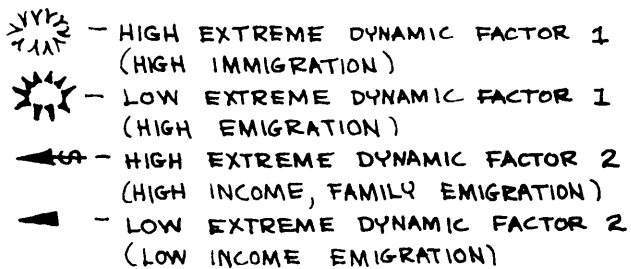 - HIGH EXTREME DYNAMIC FACTOR 1
(HIGH IMMIGRATION)
- LOW EXTREME DYNAMIC FACTOR 1
(HIGH EMIGRATION)
$ - HIGH EXTREME DYNAMIC FACTOR 2
(HIGH INCOME, FAMILY EMIGRATION)
- LOW EXTREME DYNAMIC FACTOR 2
(LOW INCOME EMIGRATION)